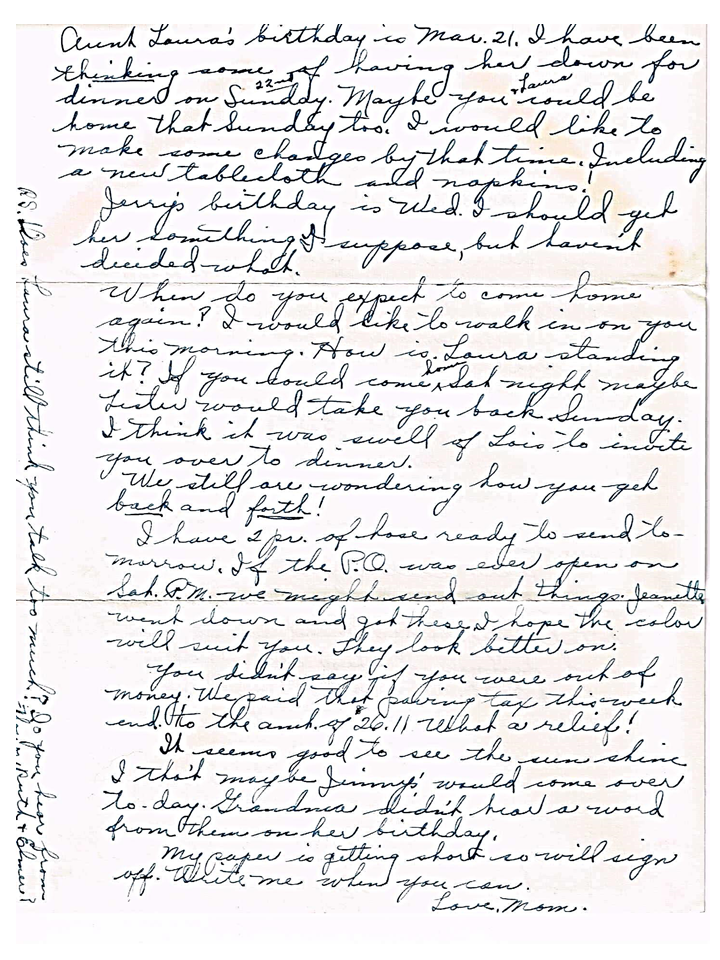 Aunt Laura's birthday is Mar. 21. I have been
thinking some of having her down for
dinner on Sunday 22nd. Maybe you & Laura could be
home that Sunday too. I would like to
make some changes by that time. Including
a new tablecloth and napkins!
Jerry's birthday is Wed. I should get
her something I suppose, but haven't
decided what.
When do you expect to come home
again? I would like to walk in on you
this morning. How is Laura standing
it? If you could come home Sat night maybe
Sister would take you back Sunday.
I think it was swell of Lois to invite
you over to dinner.
We still are wondering how you get
back and forth!
I have 2 pr. of hose ready to send to-
morrow. If the P.O. was ever open on
Sat. P.M. we might send out things. Jeanette
went down and got these. I hope the color
will suit you. They look better on.
You didn't say if you were out of
money. We paid that paving tax this week
end. to the amt. of 26.11 What a relief!
It seems good to see the sun shine
I tho't maybe Jimmys' would come over
to-day. Grandma didn't hear a word
from them on her birthday.
My paper is getting short so will sign
off. Write me when you can.
Love, Mom.
P.S. Does Laura still think you talk too much? Do you hear from
Ruth & Elmer?